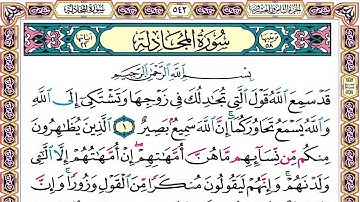 سُورَةُ المُجَادلَةِ
٥٤٢
بِسْمِ اللَّهِ الرَّحْمَٰنِ الرَّحِيمِ
قَدْ سَمِعَ اللَّهُ قَوْلَ الَّتِي تُجَٰدِلُكَ فِي زَوْجِهَا وَتَشْتَكِي إِلَى اللَّهِ
وَاللَّهُ يَسْمَعُ تَحَاوُرَكُمَا إِنَّ اللَّهَ سَمِيعٌ بَصِيرٌ ١ الَّذِينَ يُظَٰهِرُونَ
مِنكُم مِّن نِّسَآئِهِم مَّا هُنَّ أُمَّهَٰتِهِمْ إِنْ أُمَّهَٰتُهُمْ إِلَّا الَّٰٓـِٔي
وَلَدْنَهُمْ وَإِنَّهُمْ لَيَقُولُونَ مُنكَرًا مِّنَ الْقَوْلِ وَزُورًا وَإِنَّ